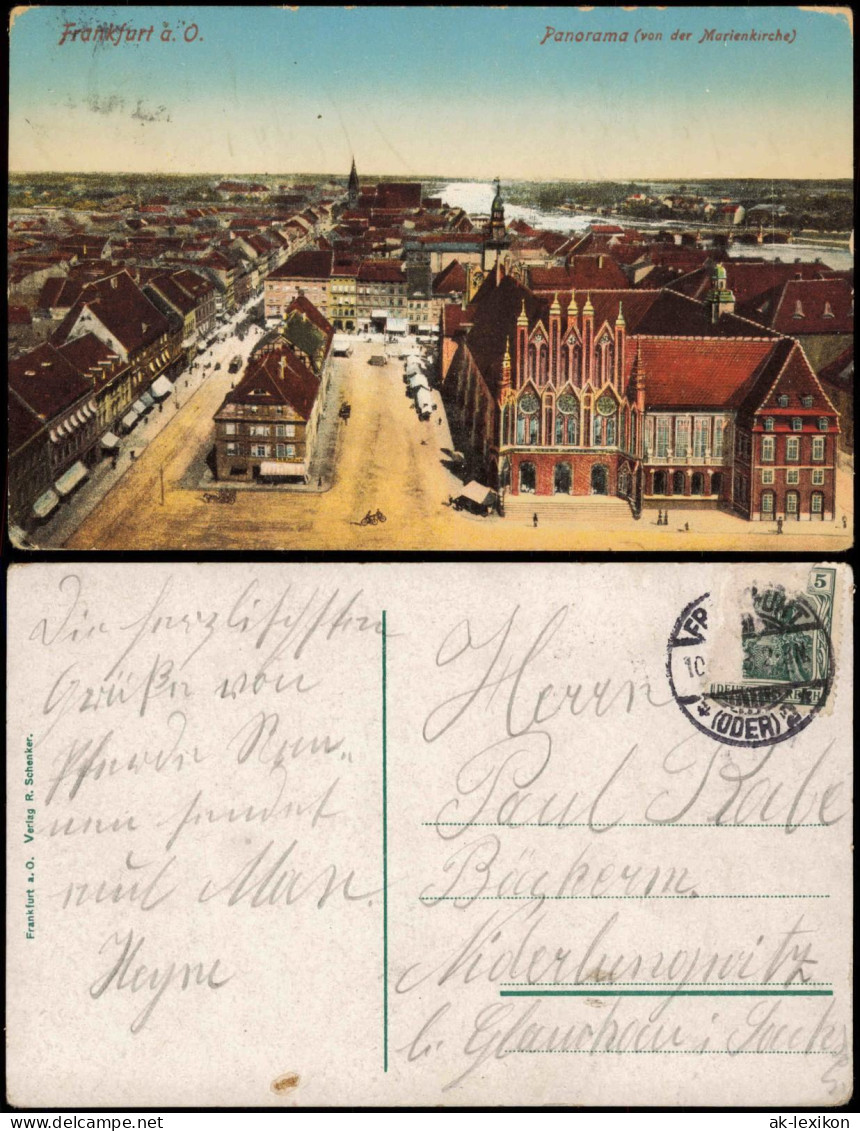 Frankfurt a. O.
Panorama (von der Marienkirche)
Die herzlichsten
Grüße von
Pferde Ren„
nen sendet
Max
Heyne
Frankfurt a. O. Verlag R. Schenker.
5
DEUTSCHES REICH
10
(ODER)
Herrn
Paul Rabe
Bäckerm.
Niderlungwitz
b. Glauchau i. Sachs
www.ak-ansichtskarten.de
ak-lexikon